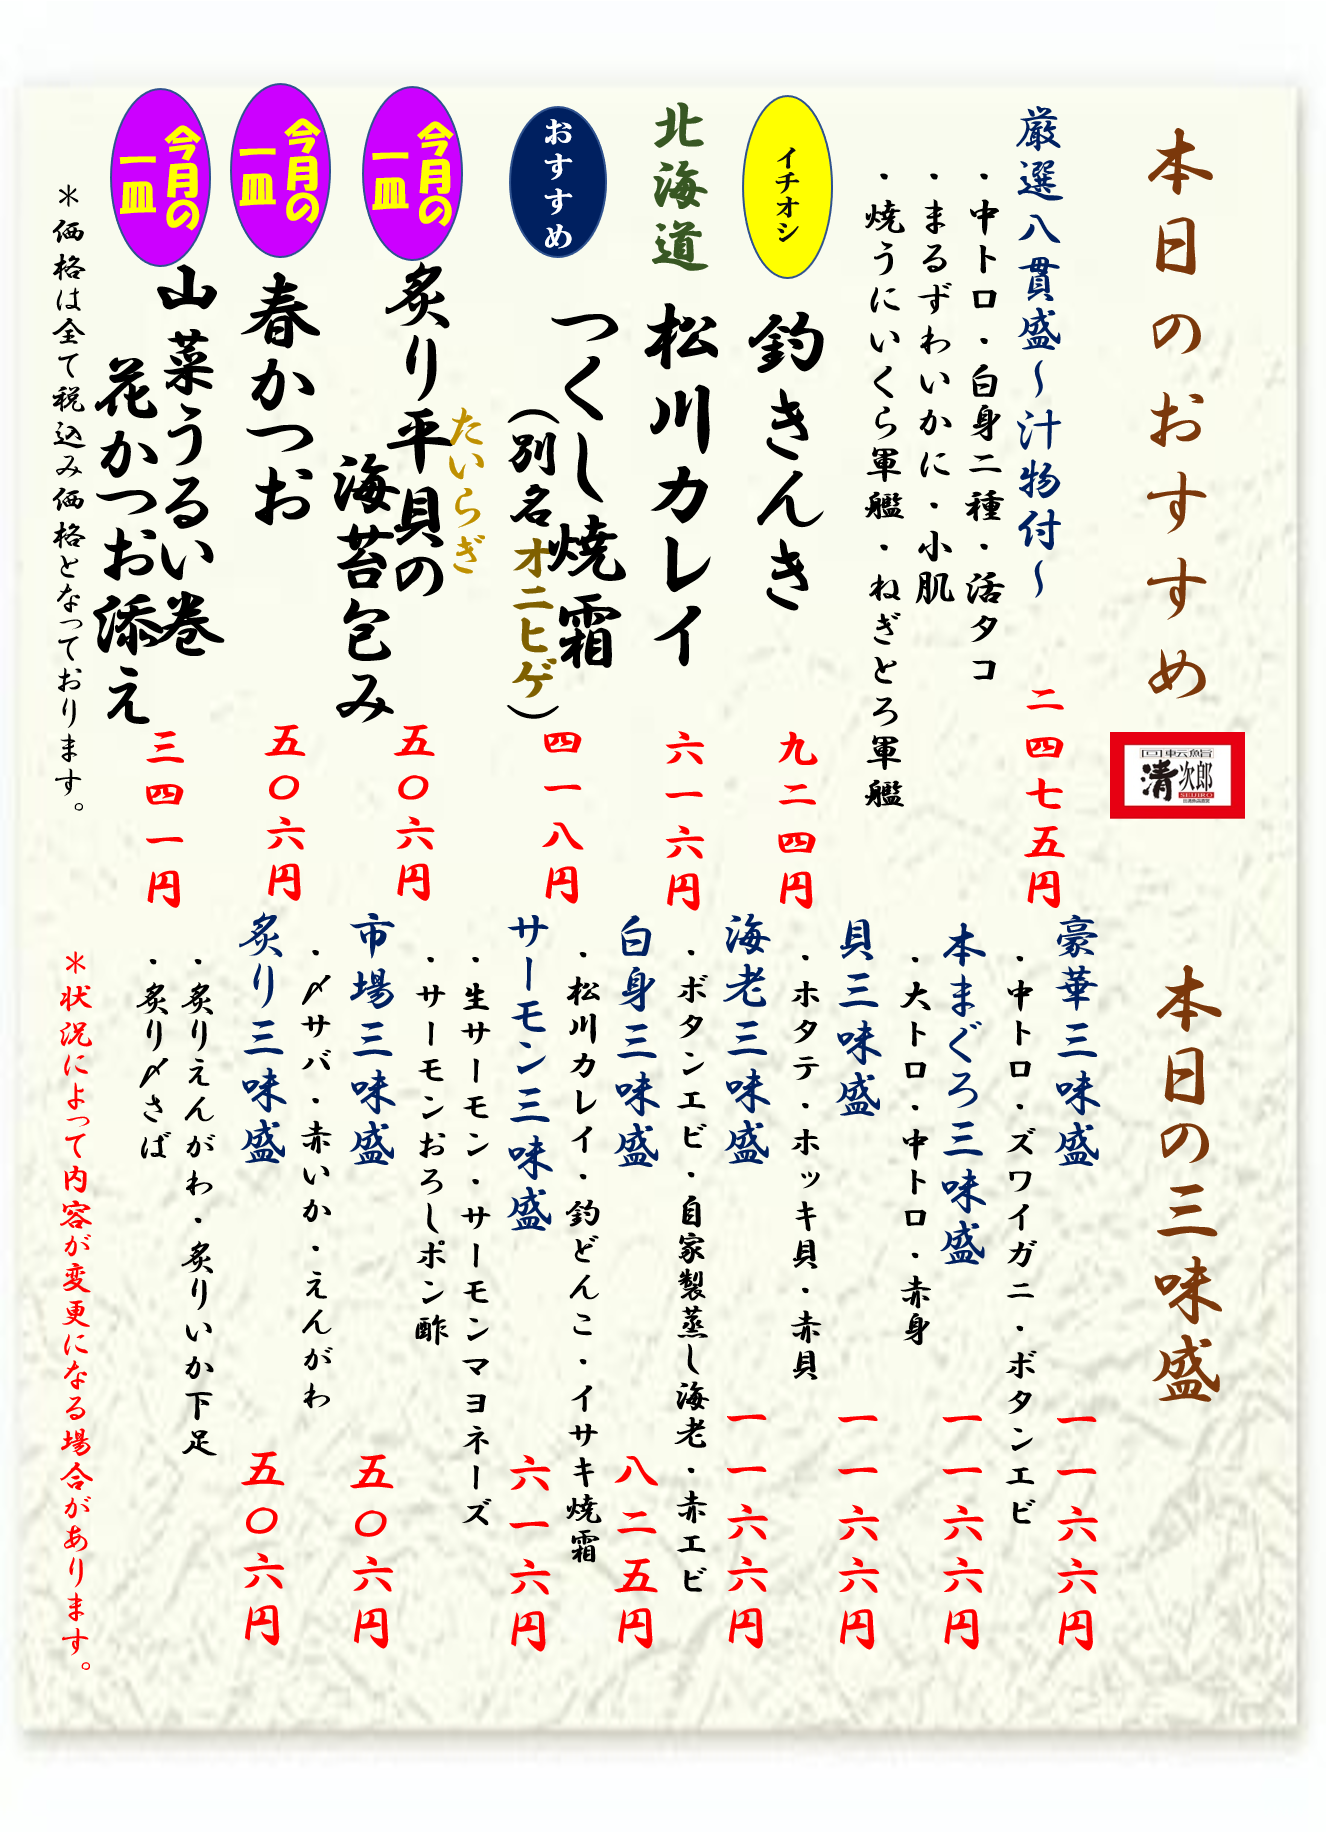 本日のおすすめ
回転鮨
清次郎
SEIJIRO
厳選八貫盛～汁物付～
・中トロ・白身二種・活タコ
・まるずわいかに・小肌
・焼うにいくら軍艦・ねぎとろ軍艦
二四七五円
イチオシ
釣きんき
九二四円
北海道
松川カレイ
六一六円
おすすめ
つくし焼霜
(別名オニヒゲ)
四一八円
今月の
一皿
たいらぎ
炙り平貝の
海苔包み
五〇六円
今月の
一皿
春かつお
五〇六円
今月の
一皿
山菜うるい巻
花かつお添え
三四一円
＊価格は全て税込み価格となっております。
本日の三味盛
豪華三味盛
・中トロ・ズワイガニ・ボタンエビ
一一六六円
本まぐろ三味盛
・大トロ・中トロ・赤身
一一六六円
貝三味盛
・ホタテ・ホッキ貝・赤貝
一一六六円
海老三味盛
・ボタンエビ・自家製蒸し海老・赤エビ
一一六六円
白身三味盛
・松川カレイ・釣どんこ・イサキ焼霜
八二五円
サーモン三味盛
・生サーモン・サーモンマヨネーズ
・サーモンおろしポン酢
六一六円
市場三味盛
・〆サバ・赤いか・えんがわ
五〇六円
炙り三味盛
・炙りえんがわ・炙りいか下足
・炙り〆さば
五〇六円
＊状況によって内容が変更になる場合があります。